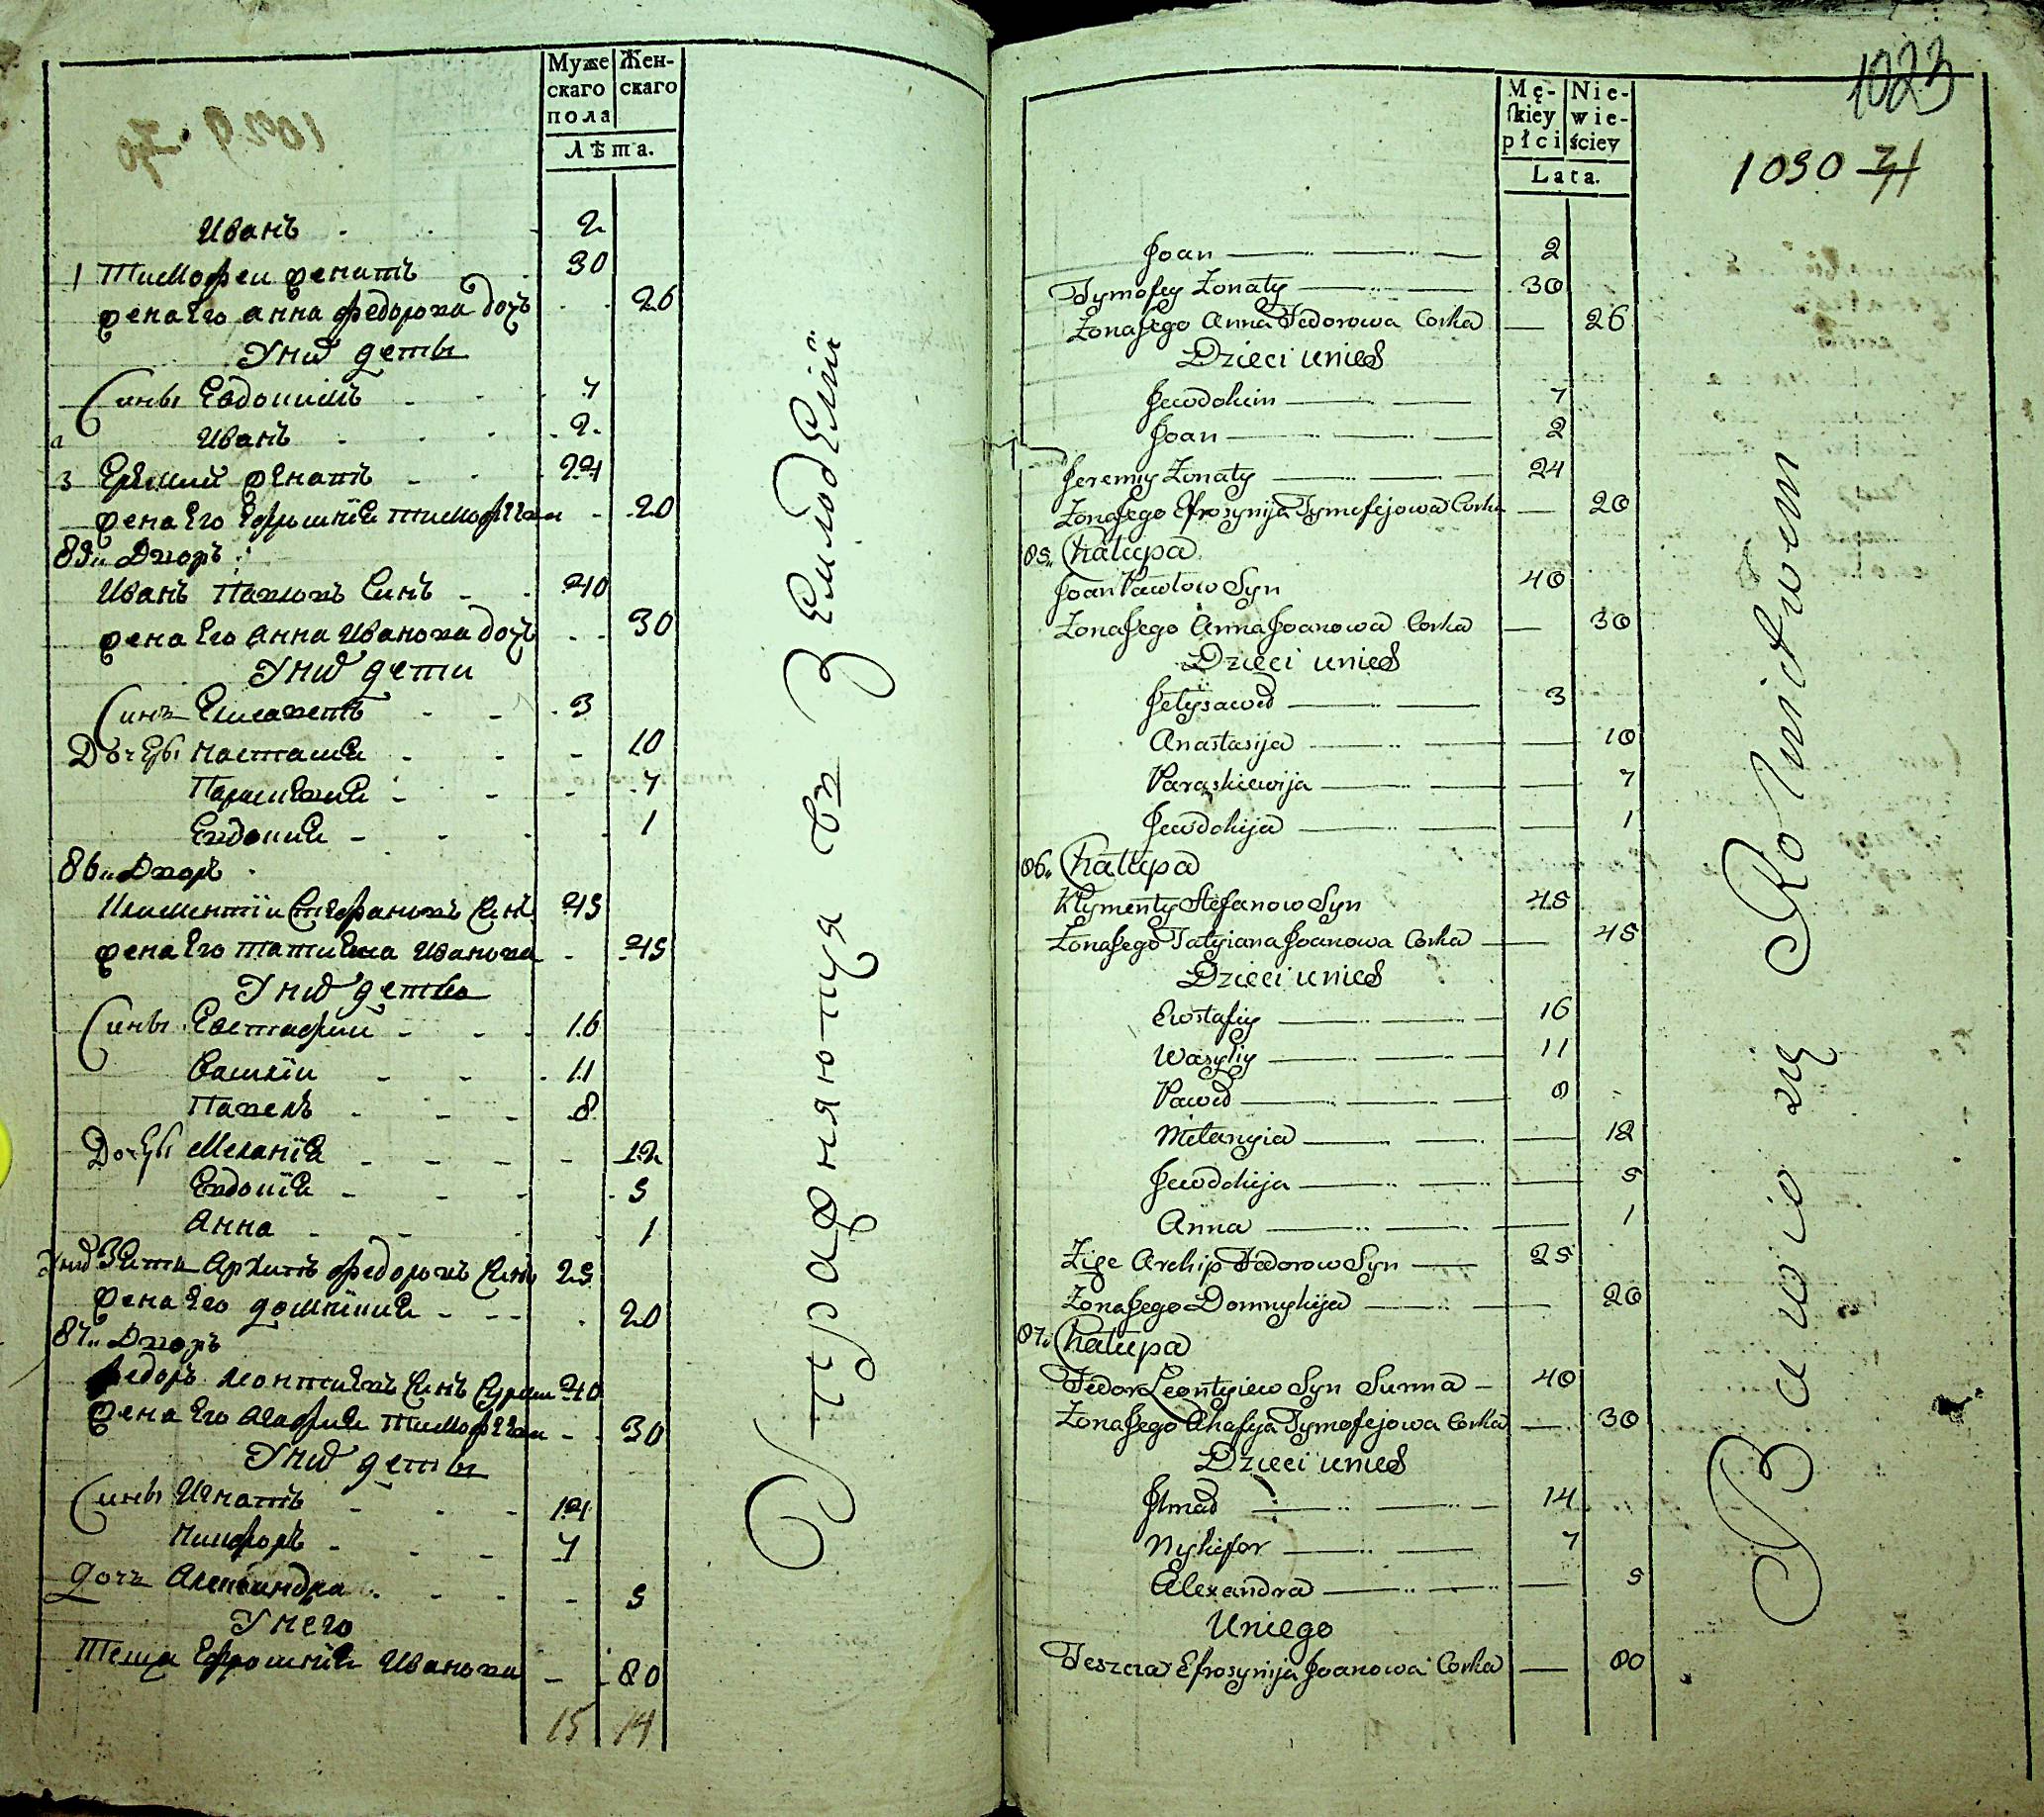 Муже Жен-
скаго скаго
пола
Лѣта.
Иванъ 2
1 Тимофеи женатъ 30
жена Его анна федорова дочь 26
У них дети
Сины Евдокимъ 7
а Иванъ 2
3 Еремий женатъ 24
жена Его Ефросинїя тимофеева 20
85 Дворъ
Иванъ Павловъ Синъ 40
жена Его Анна Иванова дочь 30
У них дети
Синъ Елисаветъ 3
Дочеры Настасия 10
Параскевия 7
Евдокия 1
86 Дворъ
Климентїи Стефановъ Синъ 45
жена Его татияна Иванова 45
У них дети
Сины Евстафии 16
Василїи 11
Павелъ 8
Дочеры Меланїя 12
Евдокїя 5
Анна 1
У них Зять Архипъ федоровъ Синъ 25
жена Его домникия 20
87 Дворъ
федоръ леонтиевъ Синъ Сурма 40
жена Его Агафия тимофеева 30
У них дети
Сины Игнатъ 14
Никифоръ 7
дочь Александра 5
У него
Теща Ефросинїя Иванова 80
15 14
Упражняются въ Землоделїи
1023
1030 31
Mę- Nie-
skiey wie-
płci ściey
Lata.
Joan 2
Tymofey Żonaty 30
Żona Jego Anna Fedorowa Corka 26
Dzieci u nich
Jewdokim 7
Joan 2
Jeremiy Żonaty 24
Żona Jego Efrosynija Tymofejowa Corka 20
85. Chałupa
Joan Pawłow Syn 40
Żona Jego Anna Joanowa Corka 30
Dzieci u nich
Jełysawed 3
Anastasija 10
Paraskiewija 7
Jewdokija 1
86. Chałupa
Kłymenty Stefanow Syn 45
Żona Jego Tatyiana Joanowa Corka 45
Dzieci u nich
Ewstafiy 16
Wasyliy 11
Paweł 8
Mełanyia 12
Jewdokija 5
Anna 1
Zięc Archip Fedorow Syn 25
Żona Jego Domnykija 20
87. Chałupa
Fedor Leontyiew Syn Surma 40
Żona Jego Ahafija Tymofejowa Corka 30
Dzieci u nich
14
Nykifor 7
Alexandra 5
U niego
Teszcza Efrosynija Joanowa Corka 80
Bawio się Rolnictwem